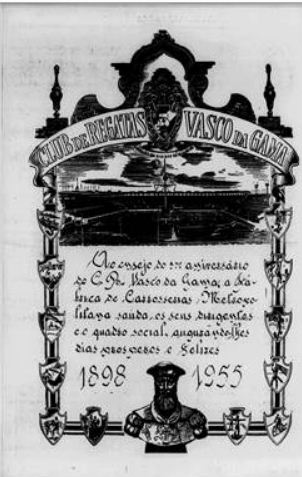 CLUB DE REGATAS VASCO DA GAMA
Ao ensejo do 57º aniversário
do C. R. Vasco da Gama, a Fá-
brica de Carrosserias Metropo-
litana saúda, os seus dirigentes
e o quadro social, augurando-lhes
dias prosperos e felizes
1898 1955